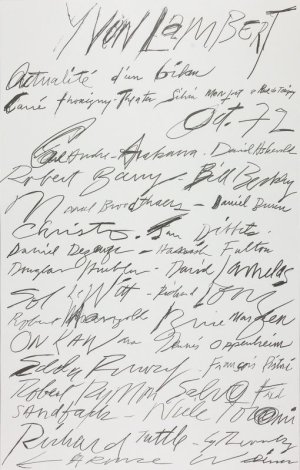 YVON LAMBERT
Actualité d'un bilan
Oct. 72
Carl Andre - Arakawa - David
Robert Barry - Bill Beckley
Marcel Broodthaers - Daniel Buren
Christo - Jan Dibbets
Daniel Dezeuze - Hamish Fulton
Douglas Huebler - David Lamelas
Sol LeWitt - Richard Long
Robert Mangold Brice Marden
ON KAWARA Dennis Oppenheim
Robert Ryman Salvo Fred
SANDBACK - Niele Toroni
Richard Tuttle - Cy Twombly